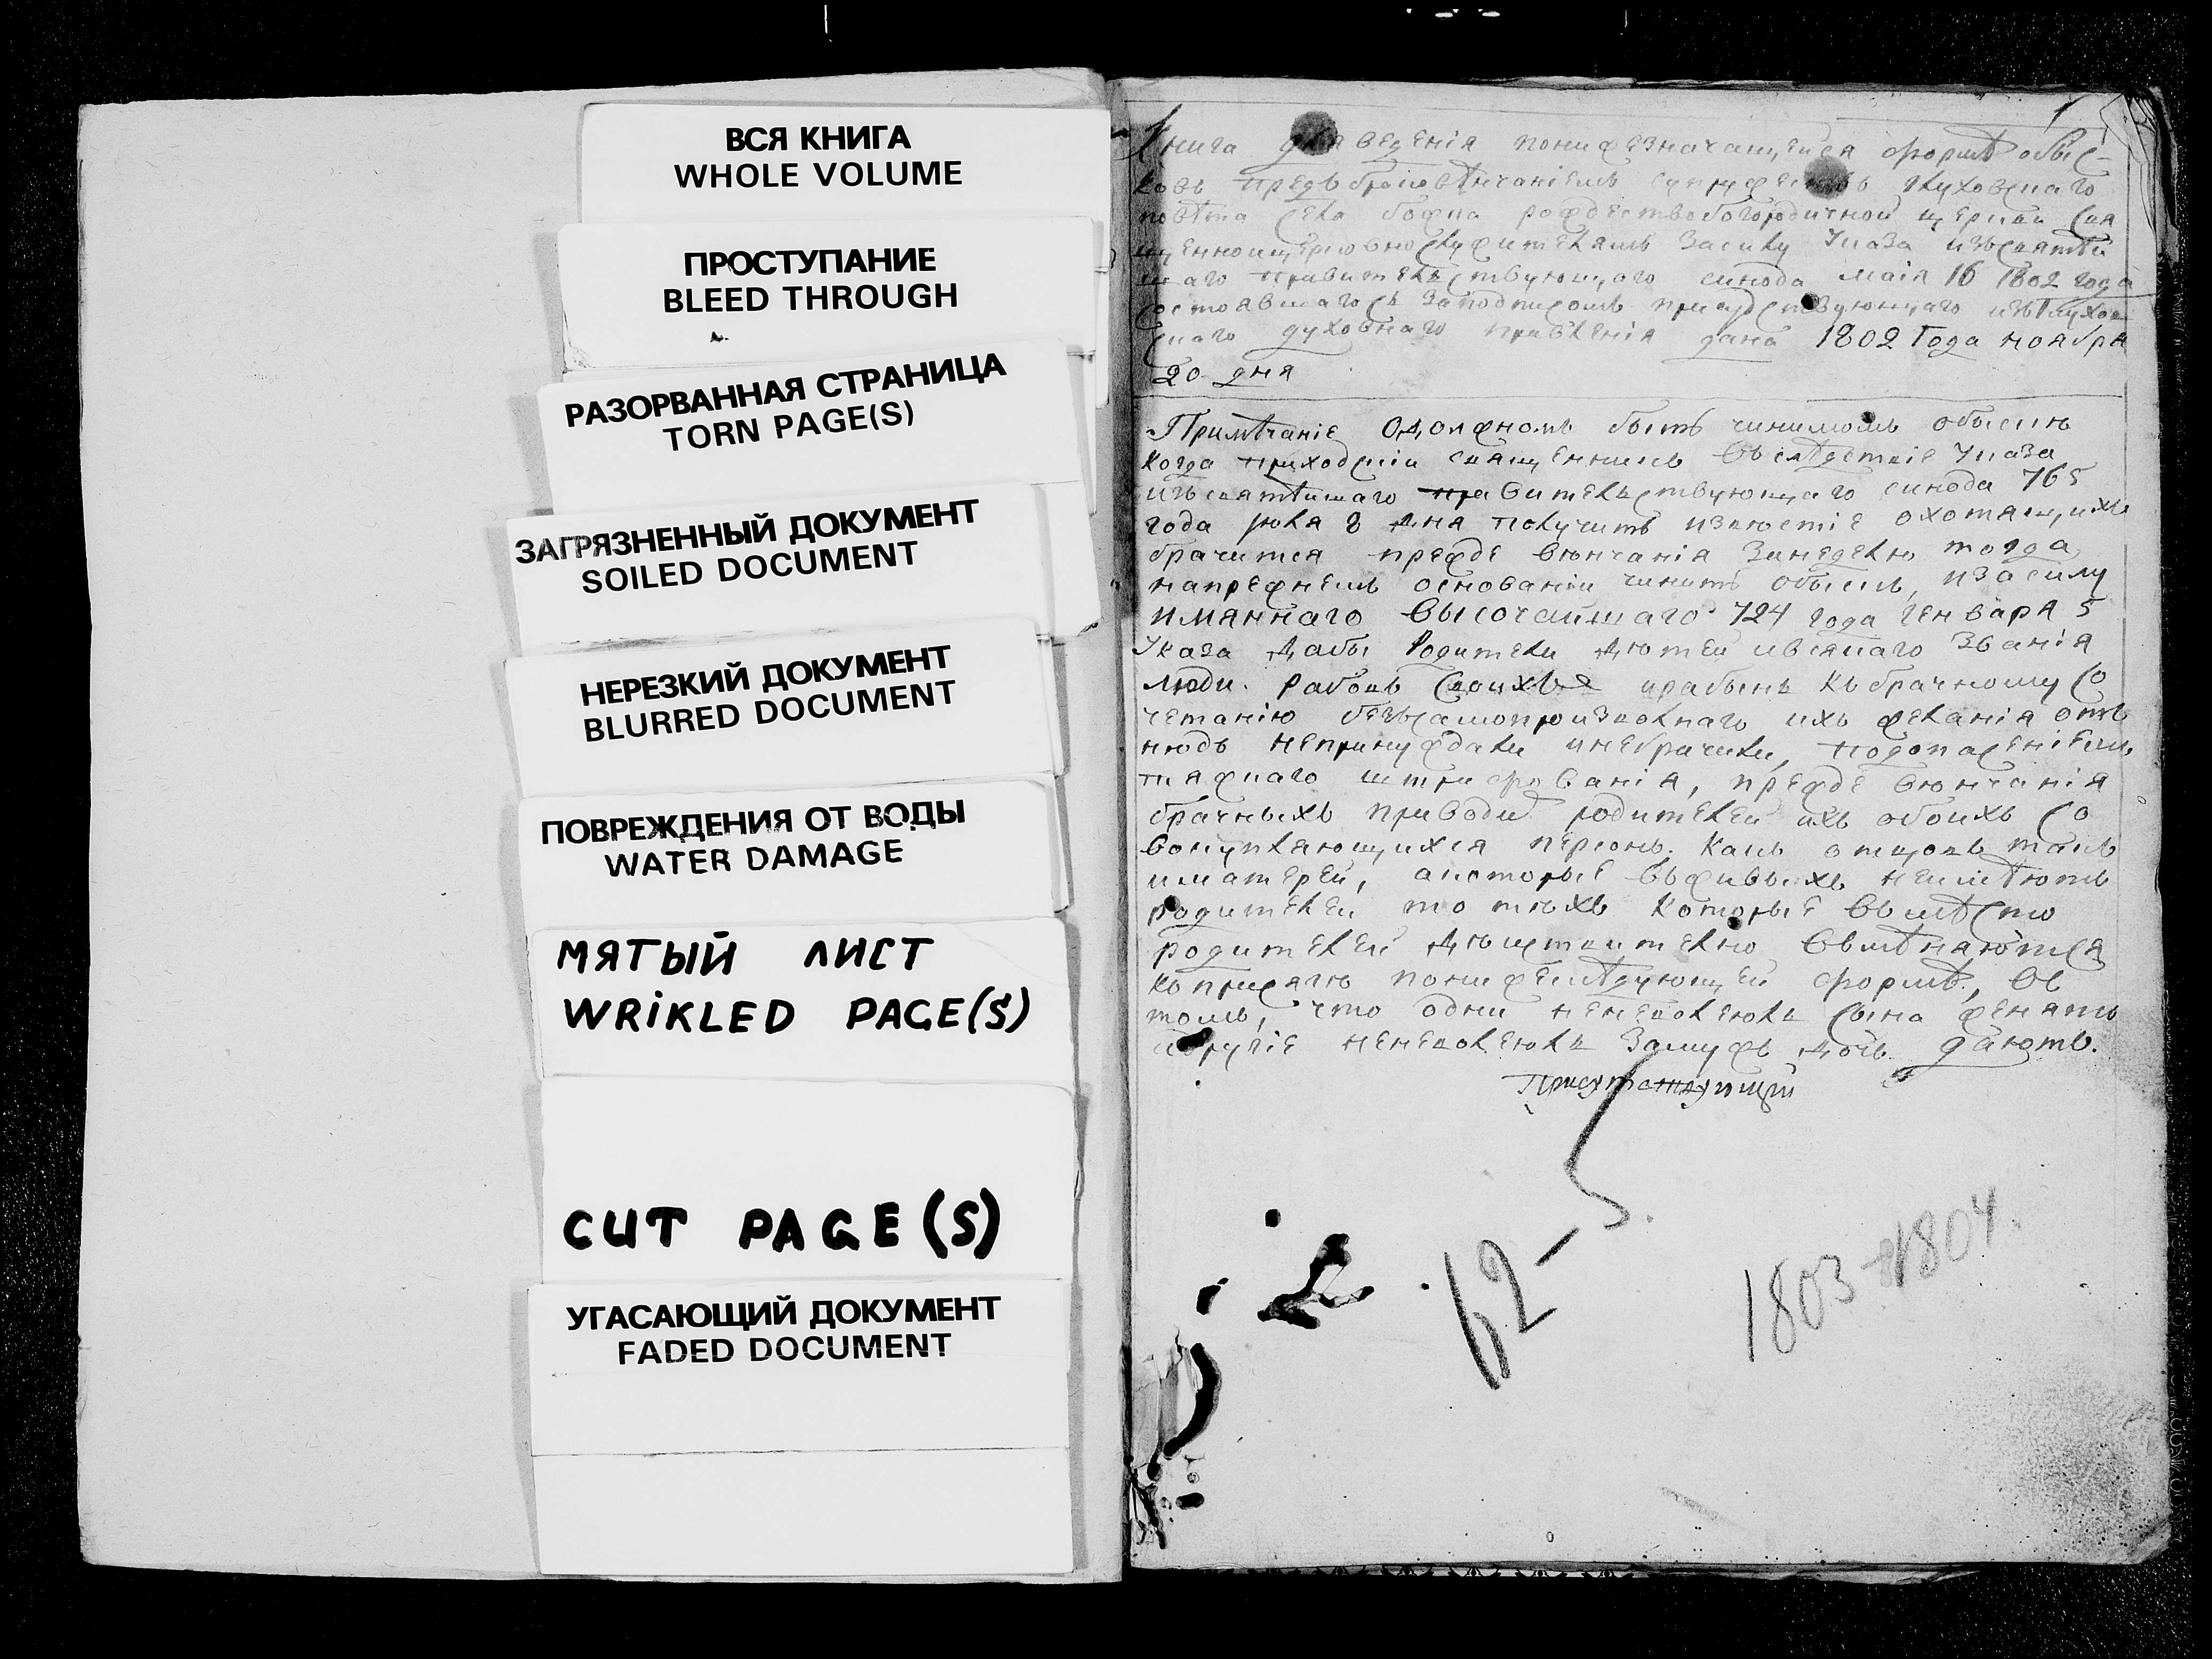 ВСЯ КНИГА
WHOLE VOLUME
ПРОСТУПАНИЕ
BLEED THROUGH
РАЗОРВАННАЯ СТРАНИЦА
TORN PAGE(S)
ЗАГРЯЗНЕННЫЙ ДОКУМЕНТ
SOILED DOCUMENT
НЕРЕЗКИЙ ДОКУМЕНТ
BLURRED DOCUMENT
ПОВРЕЖДЕНИЯ ОТ ВОДЫ
WATER DAMAGE
МЯТЫЙ ЛИСТ
WRIKLED PAGE(S)
CUT PAGE(S)
УГАСАЮЩИЙ ДОКУМЕНТ
FADED DOCUMENT
1
Книга для веденія понижезначащейся формѣ обыс-
ковъ предъ браковѣнчаніемъ глуховскаго
повѣта села рождествобогородичной церкви свя
щенноцерковнослужителямъ засилу указа изъ святѣй
шаго правительствующаго синода маія 16 1802 года
состоявшагось заподписомъ присудствующаго изъ глухов
скаго духовнаго правленія дана 1802 Года ноября
20 дня
Примѣчаніе одолжномъ быть чинимомъ обыскѣ
когда приходскіи священникъ вслѣдствіе указа
изъ святѣйшаго правительствующаго синода 765
года июля 8 дня получитъ извѣстіе охотящихся
брачится прежде вѣнчанія занеделю тогда
напрежнемъ основаніи чинить обыскъ, изасилу
имяннаго высочайшаго 724 года генваря 5
указа дабы родители дѣтей ивсякаго званія
люди рабовъ своихъ ирабынь къ брачному со
четанію безъ самопроизволнаго ихъ желанія отъ
нюдь непринуждали инебрачили, подопасеніемъ
тяжкаго штрафованія, прежде вѣнчанія
брачныхъ приводить родителей ихъ обоихъ со
вокупляющихся персонъ. какъ отцовъ такъ
иматерей, акоторые въживыхъ неимѣютъ
родителей то тѣхъ которые вмѣсто
родителей дѣйствително вмѣняются
къ присягѣ понижеслѣдующей формѣ, въ
томъ, что одни неневолею ль сына женятъ
идругіе неневолею ль замужъ дочь даютъ.
Присутствующій
62-5
1803-1804.